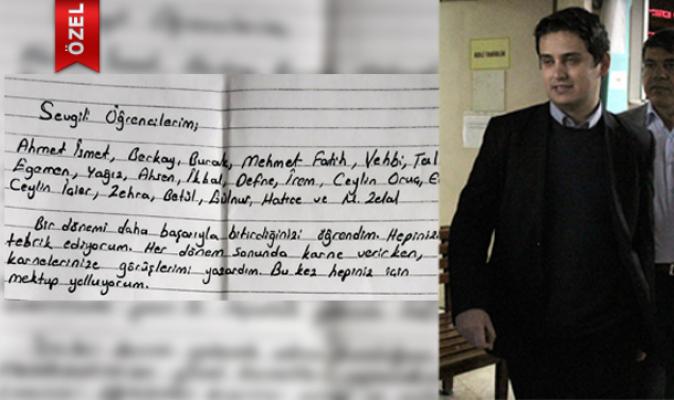 ÖZEL
Sevgili Öğrencilerim;
Ahmet İsmet, Berkay, Burak, Mehmet Fatih, Vehbi,
Egemen, Yağız, Ahsen, İkbal, Defne, İrem, Ceylin Oruç,
Ceylin İqler, Zehra, Betül, Gülnur, Hatice ve M. Zelal
Bir dönemi daha başarıyla bitirdiğinizi öğrendim.
tebrik ediyorum. Her dönem sonunda karne verirken,
karnelerinize görüşlerimi yazardım. Bu kez hepiniz için
mektup yolluyorum.